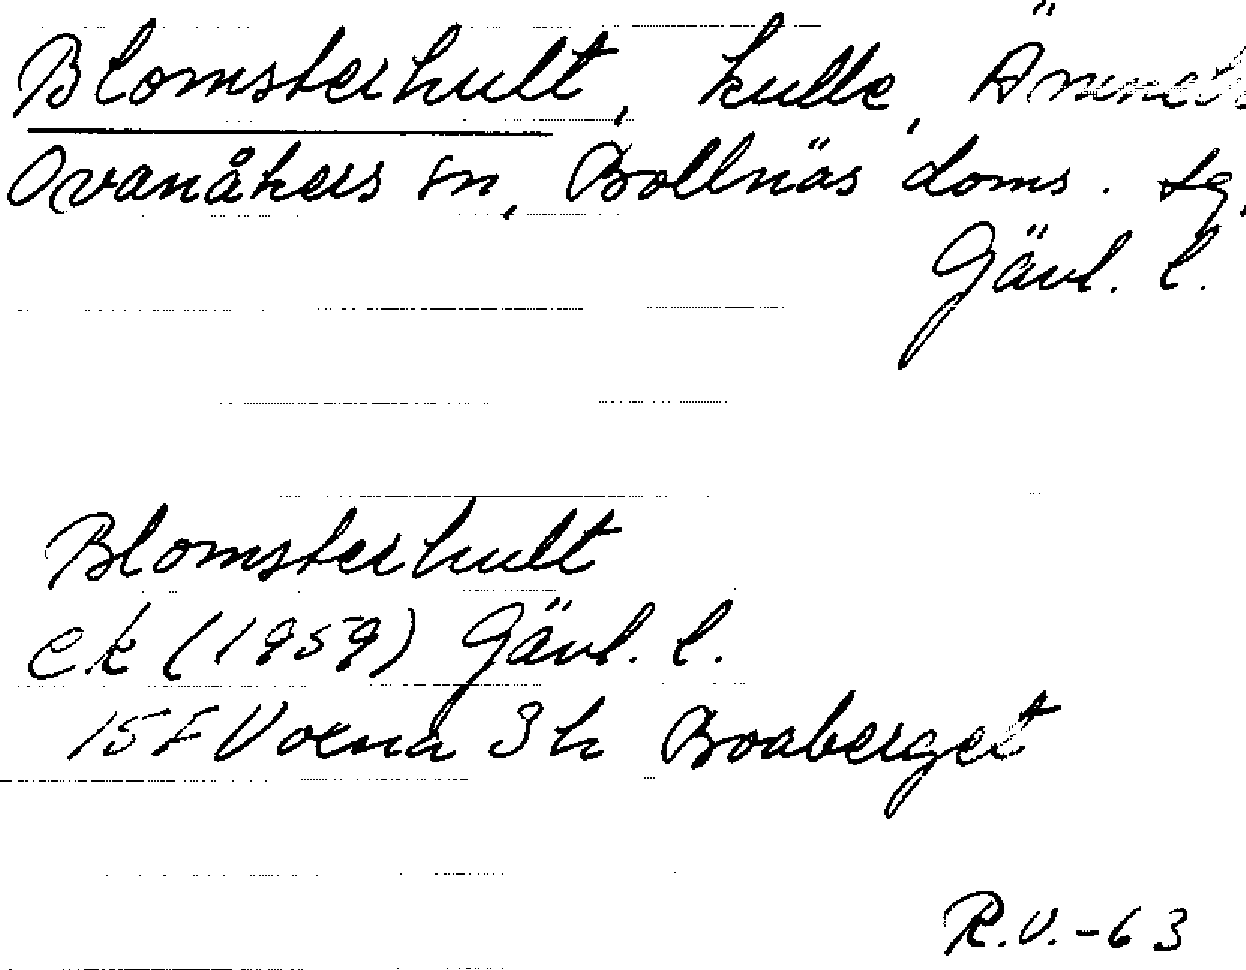 Blomsterhult, kulle,
Ovanåkers sn, Bollnäs doms. tg,
Gävl. l.
Blomsterhult
ek (1959) Gävl. l.
15F Voxna 3h Boaberget
R.V.-63